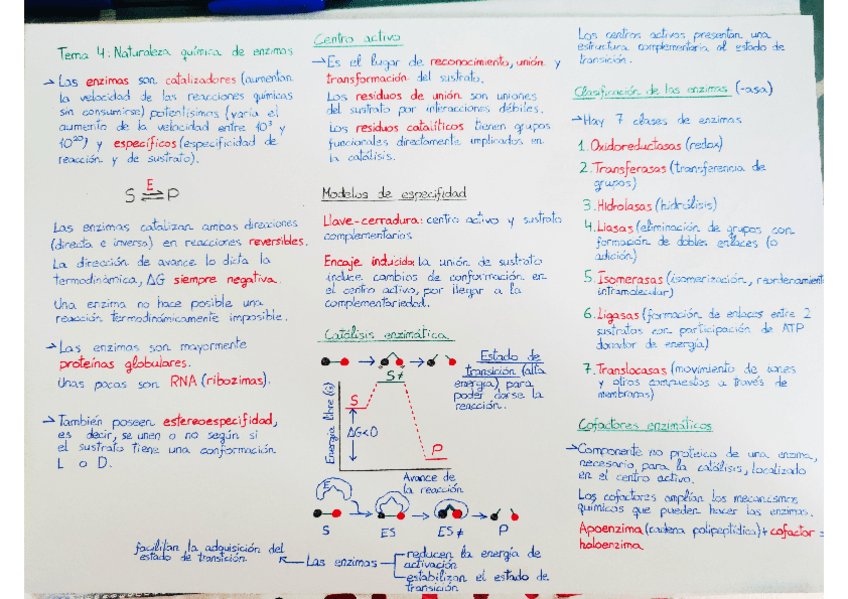 Tema 4: Naturaleza química de enzimas
→ Las enzimas son catalizadores (aumentan
la velocidad de las reacciones químicas
sin consumirse) potentísimos (varía el
aumento de la velocidad entre 10³ y
10²⁰) y específicos (especificidad de
reacción y de sustrato).
E
S ⇌ P
Las enzimas catalizan ambas direcciones
(directa e inversa) en reacciones reversibles.
La dirección de avance lo dicta la
termodinámica, ΔG siempre negativa.
Una enzima no hace posible una
reacción termodinámicamente imposible.
→ Las enzimas son mayormente
proteínas globulares.
Unas pocas son RNA (ribozimas).
→ También poseen estereoespecifidad,
es decir, se unen o no según si
el sustrato tiene una conformación
L o D.
Centro activo
→ Es el lugar de reconocimiento, unión y
transformación del sustrato.
Los residuos de unión son uniones
del sustrato por interacciones débiles.
Los residuos catalíticos tienen grupos
funcionales directamente implicados en
la catálisis.
Modelos de especifidad
Llave-cerradura: centro activo y sustrato
complementarios.
Encaje inducido: la unión de sustrato
induce cambios de conformación en
el centro activo, por llegar a la
complementariedad.
Catálisis enzimática
Estado de
transición (alta
energía) para
poder darse la
reacción.
Energía libre (G)
S
S≠
ΔG<0
P
Avance de
la reacción
E
S ES ES≠ P
facilitan la adquisición del
estado de transición
Las enzimas
reducen la energía de
activación
estabilizan el estado de
transición
Los centros activos presentan una
estructura complementaria al estado de
transición.
Clasificación de las enzimas (-asa)
→ Hay 7 clases de enzimas
1. Oxidoreductasas (redox)
2. Transferasas (transferencia de
grupos)
3. Hidrolasas (hidrólisis)
4. Liasas (eliminación de grupos con
formación de dobles enlaces (o
adición)
5. Isomerasas (isomerización, reordenamiento
intramolecular)
6. Ligasas (formación de enlaces entre 2
sustratos con participación de ATP
donador de energía)
7. Translocasas (movimiento de iones
y otros compuestos a través de
membranas)
Cofactores enzimáticos
→ Componente no proteico de una enzima,
necesario para la catálisis, localizado
en el centro activo.
Los cofactores amplían los mecanismos
químicos que pueden hacer las enzimas.
Apoenzima (cadena polipeptídica) + cofactor =
holoenzima